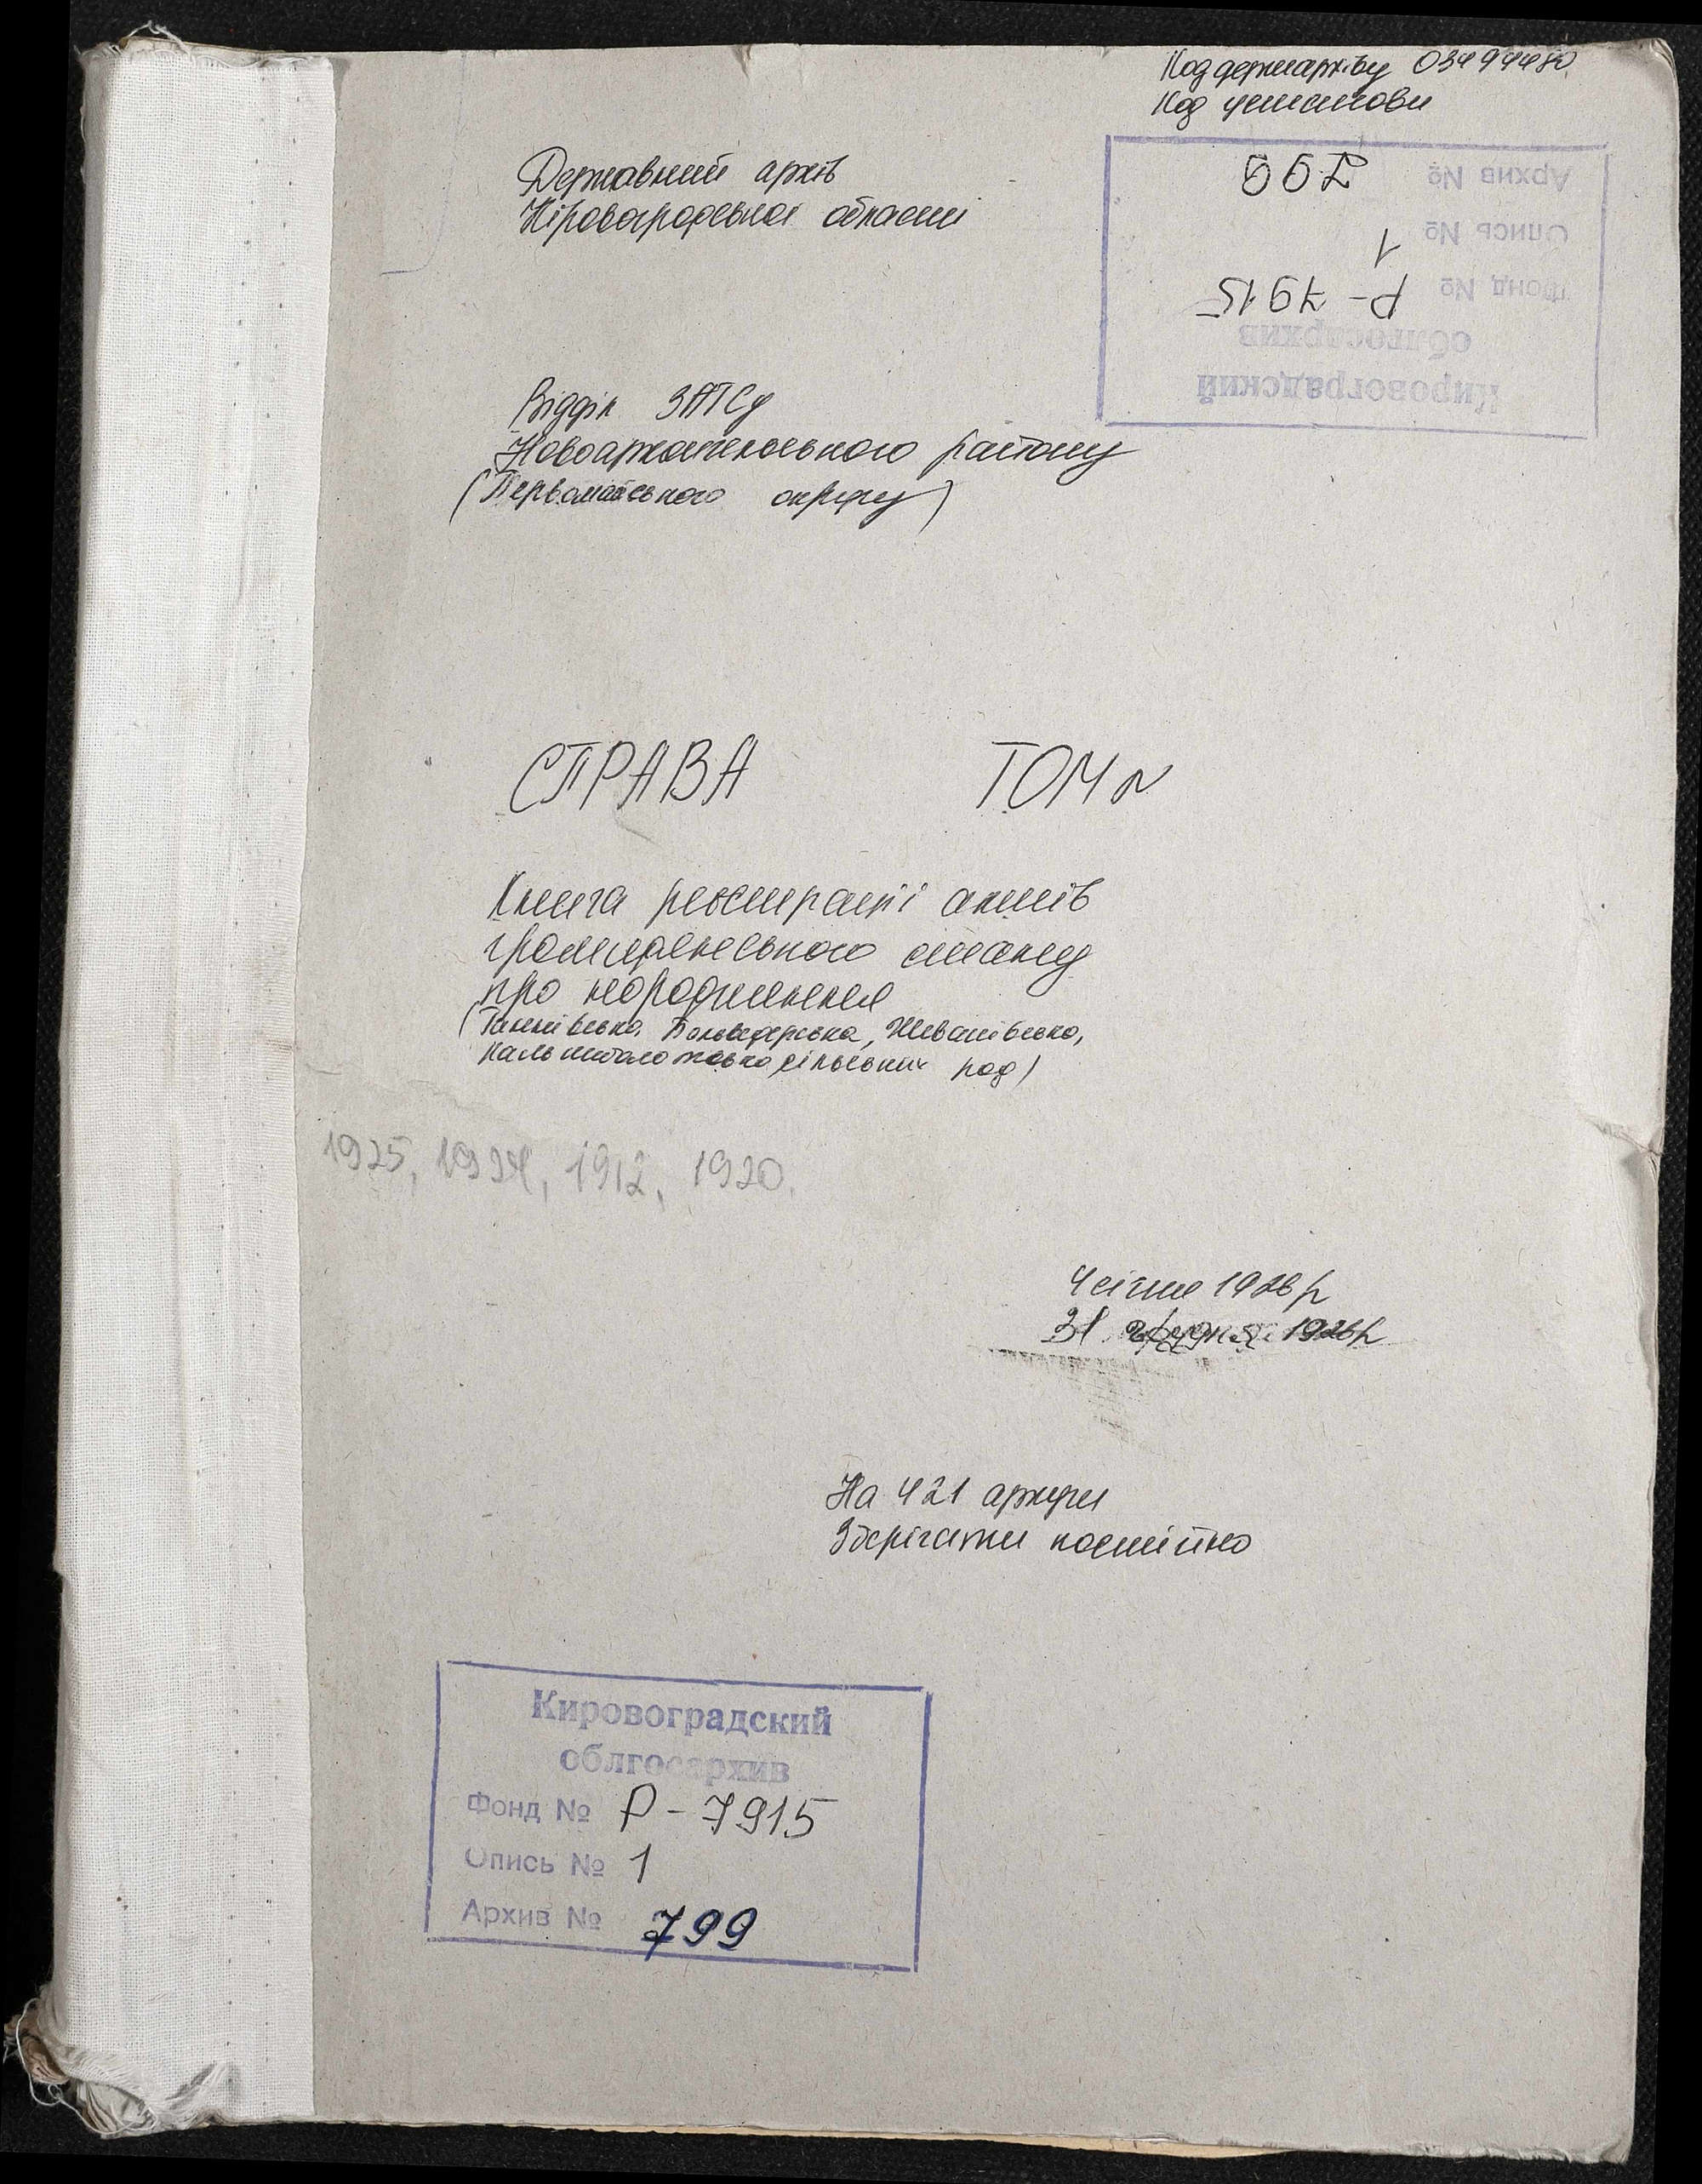 Код держархіву 03494480
Код установи
Державний архів
Кіровоградської області
Архив № 799
Опись № 1
Фонд № Р-7915
облгосархив
Кировоградский
Відділ ЗАГСу
Новоархангельського району
(Первомайського округу)
СПРАВА ТОМ №
Книга реєстрації актів
громадянського стану
про народження
(Ганнівська, Бельведерська, Живанівська,
сільських рад)
1925, 1924, 1912, 1920.
4 січня 1926 р
31 грудня 1926 р
На 421 аркуші
Зберігати постійно
Кировоградский
облгосархив
Фонд № Р-7915
Опись № 1
Архив № 799